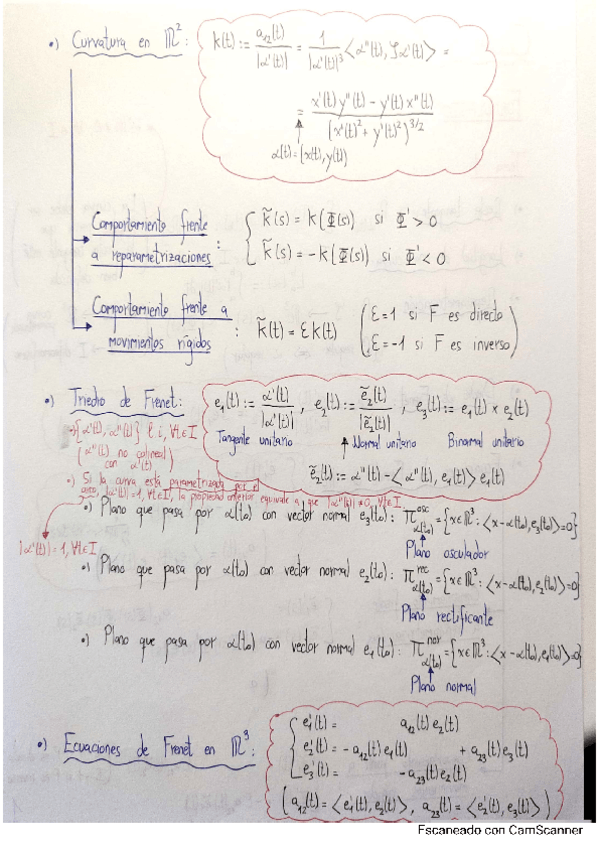 •) Curvatura en ℝ²: k(t) := a₁₂(t)/|α'(t)| = 1/|α'(t)|³ ⟨α''(t), Jα'(t)⟩ =
= (x'(t)y''(t) − y'(t)x''(t)) / (x'(t)² + y'(t)²)^(3/2)
α(t) = (x(t), y(t))
Comportamiento frente a reparametrizaciones :
k̃(s) = k(Φ(s)) si Φ' > 0
k̃(s) = −k(Φ(s)) si Φ' < 0
Comportamiento frente a movimientos rígidos : k̃(t) = εk(t)
(ε=1 si F es directo
ε=-1 si F es inverso)
•) Triedro de Frenet:
e₁(t) := α'(t)/|α'(t)| , e₂(t) := ẽ₂(t)/|ẽ₂(t)| , e₃(t) := e₁(t) × e₂(t)
Tangente unitario Normal unitario Binormal unitario
ẽ₂(t) := α''(t) − ⟨α''(t), e₁(t)⟩ e₁(t)
{α'(t), α''(t)} l.i, ∀t∈I
(α''(t) no colineal con α'(t))
•) Si la curva está parametrizada por el arco, |α'(t)|=1, ∀t∈I, la propiedad anterior equivale a que |α''(t)| ≠ 0, ∀t∈I
|α'(t)| = 1, ∀t∈I
•) Plano que pasa por α(t₀) con vector normal e₃(t₀): Π^osc_α(t₀) = {x∈ℝ³: ⟨x−α(t₀), e₃(t₀)⟩=0}
Plano osculador
•) Plano que pasa por α(t₀) con vector normal e₂(t₀): Π^rec_α(t₀) = {x∈ℝ³: ⟨x−α(t₀), e₂(t₀)⟩=0}
Plano rectificante
•) Plano que pasa por α(t₀) con vector normal e₁(t₀): Π^nor_α(t₀) = {x∈ℝ³: ⟨x−α(t₀), e₁(t₀)⟩=0}
Plano normal
•) Ecuaciones de Frenet en ℝ³:
e₁'(t) = a₁₂(t) e₂(t)
e₂'(t) = − a₁₂(t) e₁(t) + a₂₃(t) e₃(t)
e₃'(t) = −a₂₃(t) e₂(t)
(a₁₂(t) = ⟨e₁'(t), e₂(t)⟩, a₂₃(t) = ⟨e₂'(t), e₃(t)⟩)
Escaneado con CamScanner